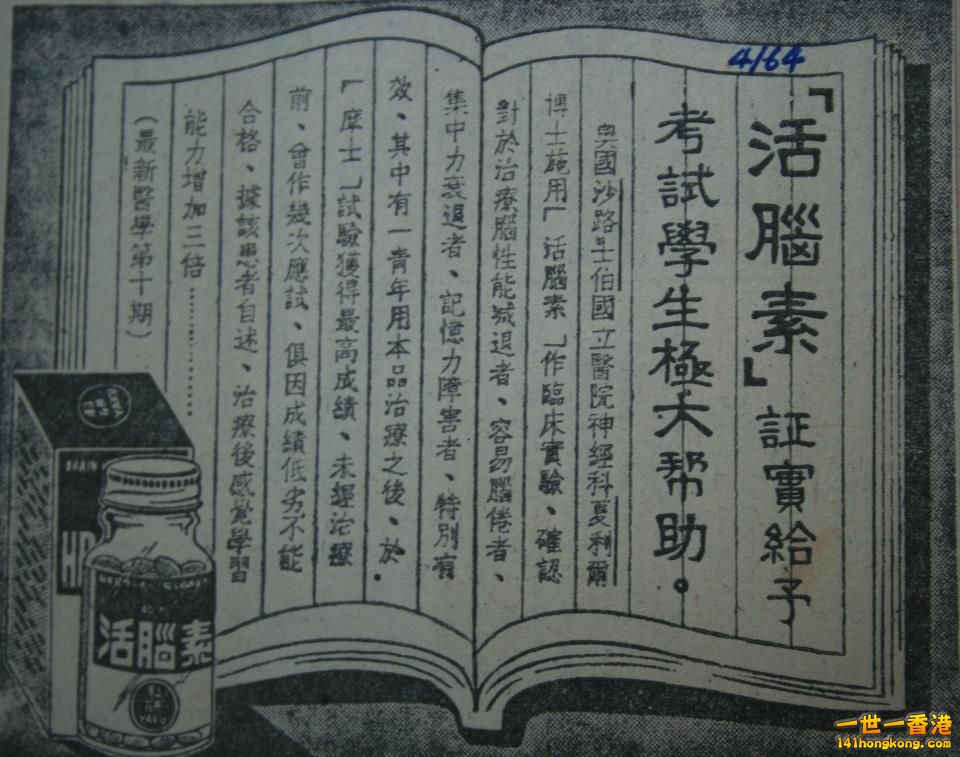 4/64
「活腦素」証實給予
考試學生極大帮助。
奧國沙路士伯國立醫院神經科夏利爾
博士施用「活腦素」作臨床實驗、確認
對於治療腦性能減退者、容易腦倦者、
集中力衰退者、記憶力障害者、特別有
效、其中有一青年用本品治療之後、於
「摩士」試驗獲得最高成績、未經治療
前、曾作幾次應試、俱因成績低劣不能
合格、據該患者自述、治療後感覺學習
能力增加三倍…………
（最新醫學第十期）
BRAIN
活腦素
YAKU
一世一香港
141hongkong.com